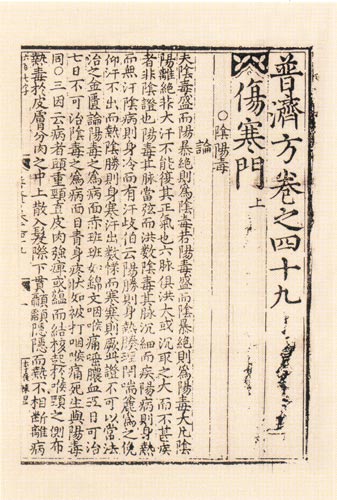 普濟方卷之四十九
傷寒門 上
○陰陽毒
論
夫陰毒盛而陽暴絕則為陰毒若陽毒盛而陰暴絕則為陽毒大凡陰
陽離絕非大汗不能獲其正氣也六脉俱洪大或沉取之大而不甚疾
者非陰證也陽毒其脉當弦而洪数陰毒其脉沉細而疾陽病則身熱
而無汗陰病則身冷而有汗歧伯云陽勝則身熱腠理閉喘麁為之俛
仰汗不出而熱陰勝則身寒汗出数慄而寒寒則厥此證不可以常法
治之金匱論陽毒之為病面赤班班如錦文咽喉痛唾膿血五日可治
七日不可治陰毒之為病面目青身疼狀如被打咽喉痛死生與陽毒
同○三因云病者頭重頸直皮肉強痺或蘊而結核起於喉頸之側布
熱毒於皮膚分肉之中上散入髮際下貫顴顬隱隱而熱不相斷離病